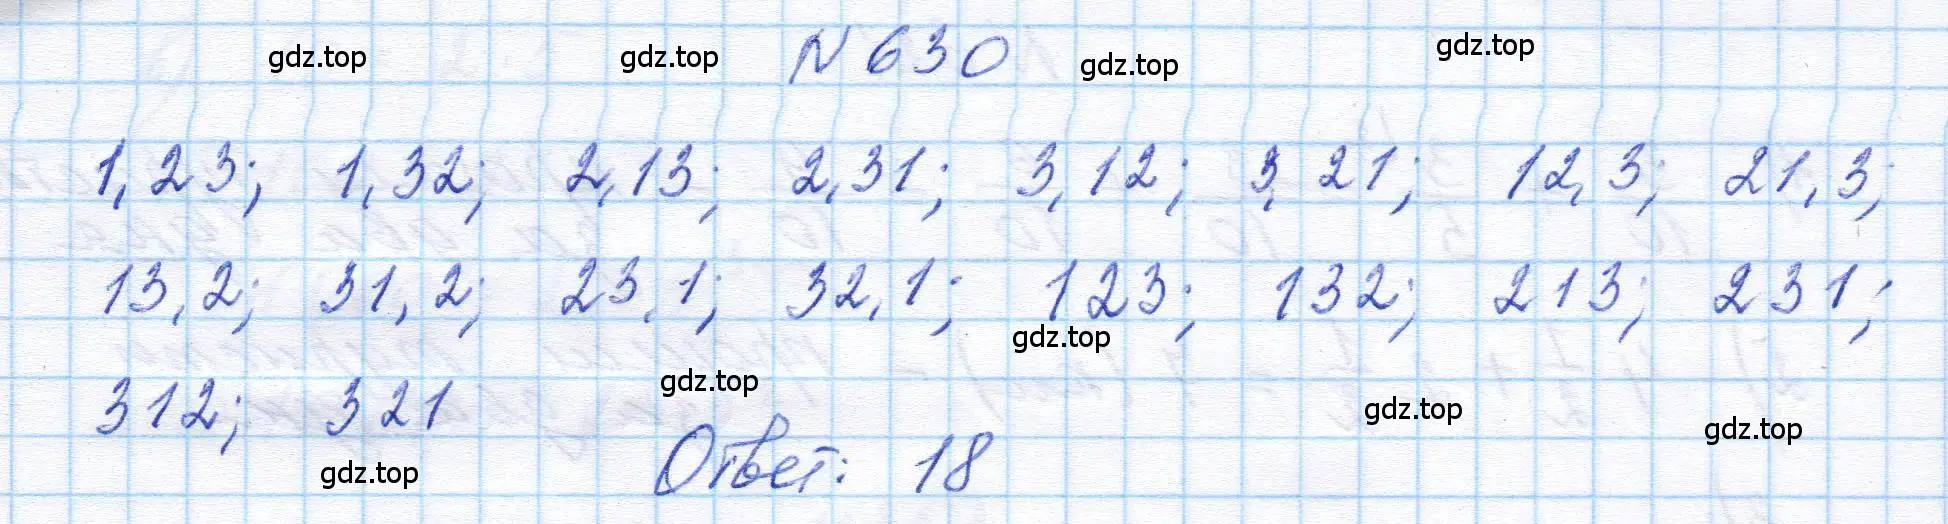 gdz.top gdz.top N 630 gdz.top gdz.top
1,23; 1,32; 2,13; 2,31; 3,12; 3,21; 12,3; 21,3;
13,2; 31,2; 23,1; 32,1; 123; 132; 213; 231;
gdz.top
312; 321 gdz.top gdz.top gdz.top
gdz.top Ответ: 18